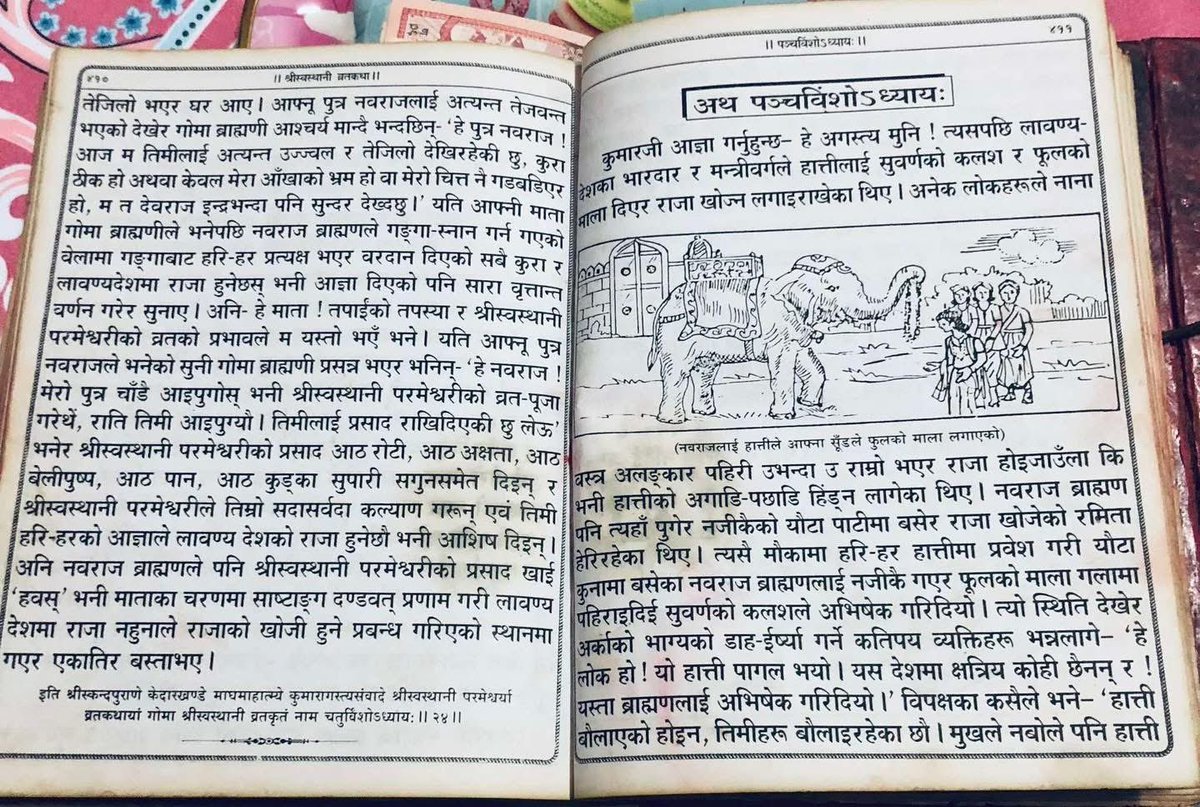 ४१०
।। श्रीस्वस्थानी व्रतकथा ।।
तेजिलो भएर घर आए । आफ्नू पुत्र नवराजलाई अत्यन्त तेजवन्त
भएको देखेर गोमा ब्राह्मणी आश्चर्य मान्दै भन्दछिन्– 'हे पुत्र नवराज !
आज म तिमीलाई अत्यन्त उज्ज्वल र तेजिलो देखिरहेकी छु, कुरा
ठीक हो अथवा केवल मेरा आँखाको भ्रम हो वा मेरो चित्त नै गडबडिएर
हो, म त देवराज इन्द्रभन्दा पनि सुन्दर देख्दछु ।' यति आफ्नी माता
गोमा ब्राह्मणीले भनेपछि नवराज ब्राह्मणले गङ्गा-स्नान गर्न गएको
बेलामा गङ्गाबाट हरि-हर प्रत्यक्ष भएर वरदान दिएको सबै कुरा र
लावण्यदेशमा राजा हुनेछस् भनी आज्ञा दिएको पनि सारा वृत्तान्त
वर्णन गरेर सुनाए । अनि- हे माता ! तपाईंको तपस्या र श्रीस्वस्थानी
परमेश्वरीको व्रतको प्रभावले म यस्तो भएँ भने । यति आफ्नू पुत्र
नवराजले भनेको सुनी गोमा ब्राह्मणी प्रसन्न भएर भनिन्- 'हे नवराज !
मेरो पुत्र चाँडै आइपुगोस् भनी श्रीस्वस्थानी परमेश्वरीको व्रत-पूजा
गरेथें, राति तिमी आइपुग्यौ । तिमीलाई प्रसाद राखिदिएकी छु लेऊ'
भनेर श्रीस्वस्थानी परमेश्वरीको प्रसाद आठ रोटी, आठ अक्षता, आठ
बेलीपुष्प, आठ पान, आठ कुड्का सुपारी सगुनसमेत दिइन् र
श्रीस्वस्थानी परमेश्वरीले तिम्रो सदासर्वदा कल्याण गरून् एवं तिमी
हरि-हरको आज्ञाले लावण्य देशको राजा हुनेछौ भनी आशिष दिइन् ।
अनि नवराज ब्राह्मणले पनि श्रीस्वस्थानी परमेश्वरीको प्रसाद खाई
'हवस्' भनी माताका चरणमा साष्टाङ्ग दण्डवत् प्रणाम गरी लावण्य
देशमा राजा नहुनाले राजाको खोजी हुने प्रबन्ध गरिएको स्थानमा
गएर एकातिर बस्ताभए ।
इति श्रीस्कन्दपुराणे केदारखण्डे माघमाहात्म्ये कुमारागस्त्यसंवादे श्रीस्वस्थानी परमेश्वर्या
व्रतकथायां गोमा श्रीस्वस्थानी व्रतकृतं नाम चतुर्विंशोऽध्यायः ।। २४ ।।
।। पञ्चविंशोऽध्यायः ।।
४११
अथ पञ्चविंशोऽध्यायः
कुमारजी आज्ञा गर्नुहुन्छ– हे अगस्त्य मुनि ! त्यसपछि लावण्य-
देशका भारदार र मन्त्रीवर्गले हात्तीलाई सुवर्णको कलश र फूलको
माला दिएर राजा खोज्न लगाइराखेका थिए । अनेक लोकहरूले नाना
(नवराजलाई हात्तीले आफ्ना सूँडले फुलको माला लगाएको)
वस्त्र अलङ्कार पहिरी उभन्दा उ राम्रो भएर राजा होइजाउँला कि
भनी हात्तीको अगाडि-पछाडि हिंड्न लागेका थिए । नवराज ब्राह्मण
पनि त्यहाँ पुगेर नजीकैको यौटा पाटीमा बसेर राजा खोजेको रमिता
हेरिरहेका थिए । त्यसै मौकामा हरि-हर हात्तीमा प्रवेश गरी यौटा
कुनामा बसेका नवराज ब्राह्मणलाई नजीकै गएर फूलको माला गलामा
पहिराइदिई सुवर्णको कलशले अभिषेक गरिदियो । त्यो स्थिति देखेर
अर्काको भाग्यको डाह-ईर्ष्या गर्ने कतिपय व्यक्तिहरू भन्नलागे– 'हे
लोक हो ! यो हात्ती पागल भयो । यस देशमा क्षत्रिय कोही छैनन् र !
यस्ता ब्राह्मणलाई अभिषेक गरिदियो ।' विपक्षका कसैले भने– 'हात्ती
बौलाएको होइन, तिमीहरू बौलाइरहेका छौ । मुखले नबोले पनि हात्ती